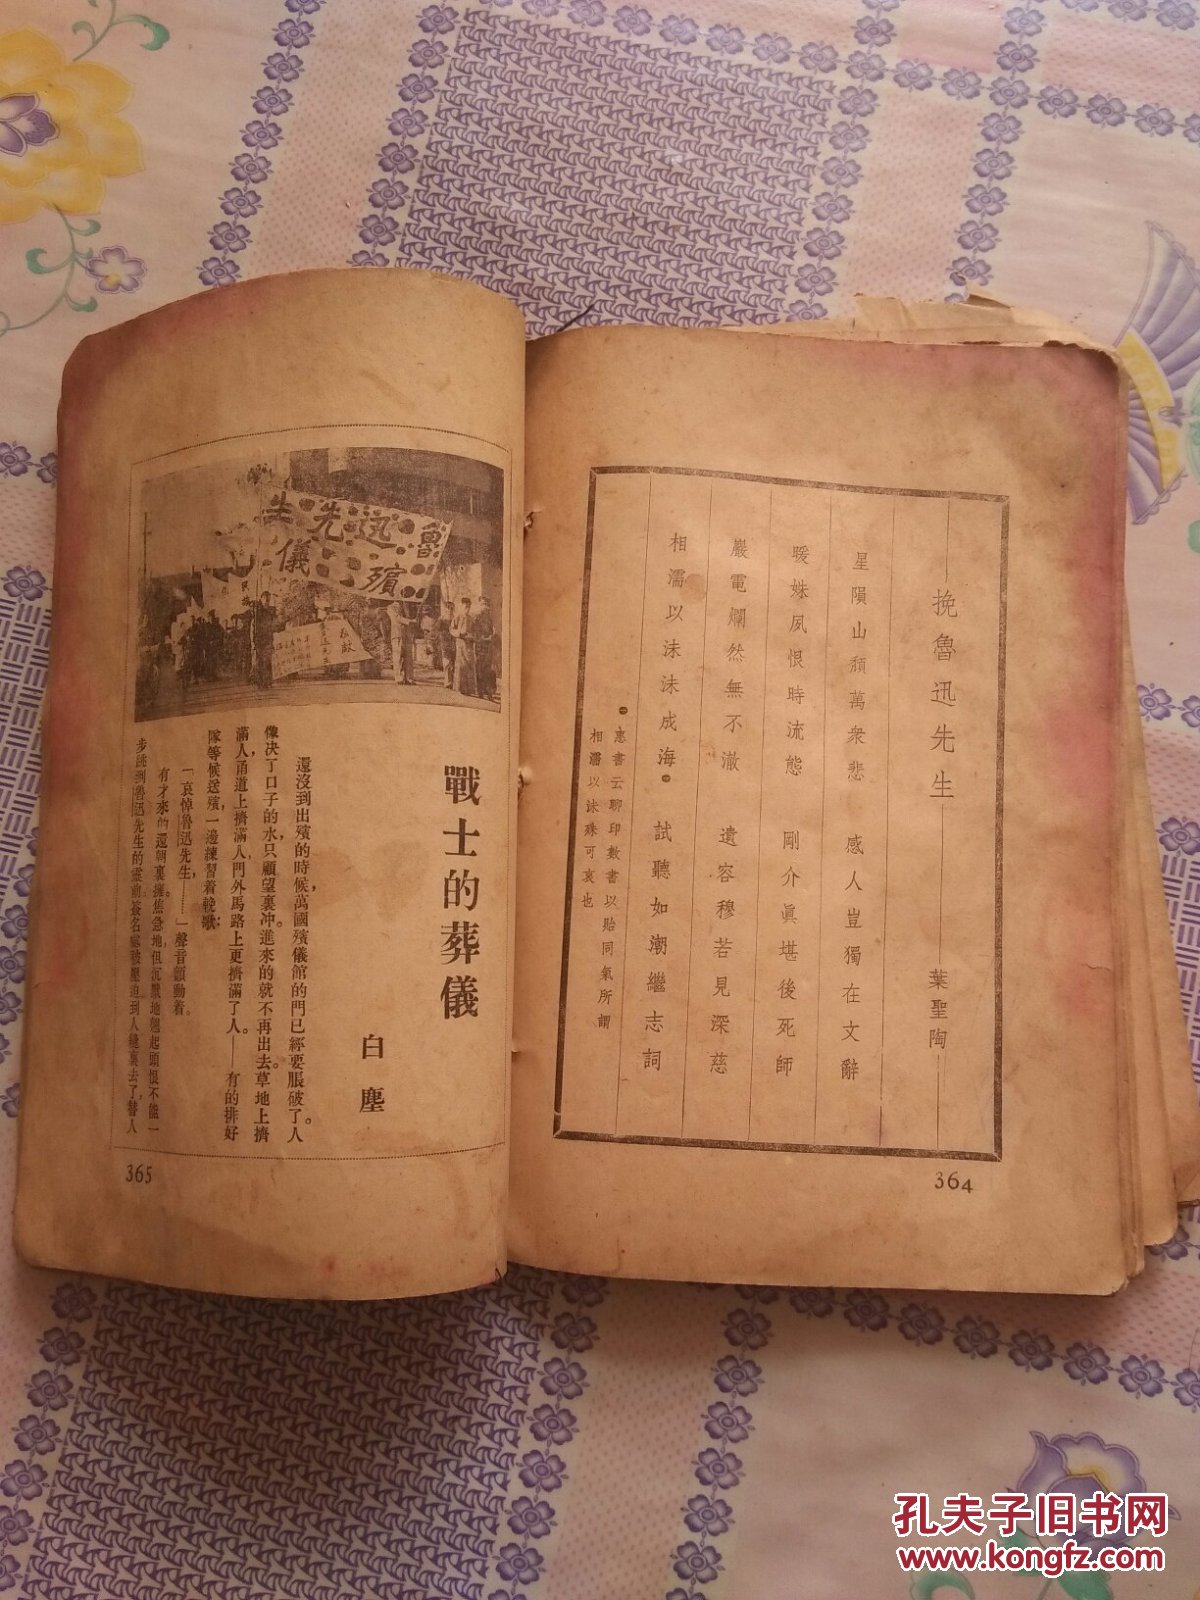 挽魯迅先生
葉聖陶
星隕山頹萬衆悲 感人豈獨在文辭
暖姝夙恨時流態 剛介眞堪後死師
巖電爛然無不澈 遺容穆若見深慈
相濡以沫沫成海 試聽如潮繼志詞
惠書云聊印數書以貽同氣所謂
相濡以沫殊可哀也
364
魯迅先生
殯儀
戰士的葬儀
白塵
還沒到出殯的時候，萬國殯儀館的門已經要脹破了。人
像決了口子的水，只顧望裏冲。進來的就不再出去。草地上擠
滿人，甬道上擠滿人，門外馬路上更擠滿了人。——有的排好
隊等候送殯，一邊練習着輓歌：
「哀悼魯迅先生……」聲音顫動着。
有才來的還朝裏擁。焦急地，但沉默地翹起頭，恨不能一
步跳到魯迅先生的靈前。簽名處被壓迫到人縫裏去了，替人
365
孔夫子旧书网
www.kongfz.com